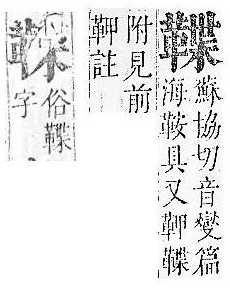 鞢
蘇協切音燮篇
海鞍具又鞢
附見前
註
俗鞢
字